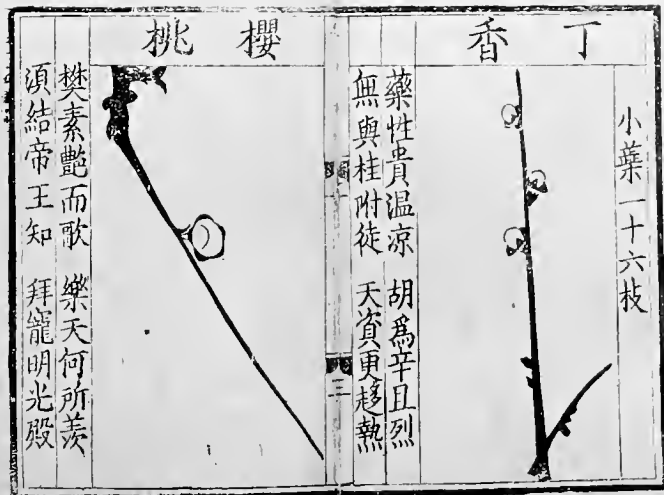 小蘂一十六枝
丁香
藥性貴温凉 胡爲辛且烈
無與桂附徒 天資更趍熱
三
櫻桃
樊素艷而歌 樂天何所羨
須結帝王知 拜寵明光殿